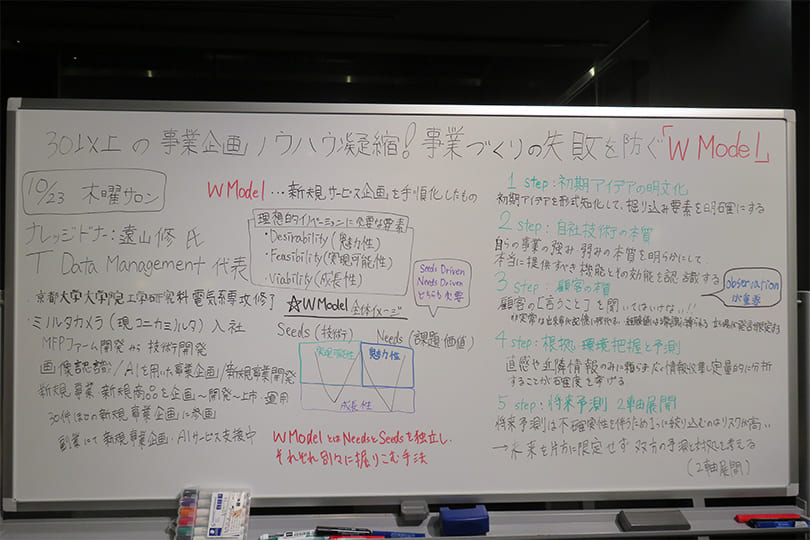 30以上の事業企画ノウハウ凝縮!事業づくりの失敗を防ぐ「W Model」
10/23 木曜サロン
ナレッジドナー:遠山修 氏
T Data Management 代表
京都大学大学院 工学研究科 電気系専攻修了
・ミノルタカメラ(現コニカミノルタ)入社
MFPファーム開発から技術開発
画像認識/AIを用いた事業企画/新規事業開発
新規事業・新規商品を企画〜開発〜上市・運用
30件ほどの新規事業企画に参画
副業にて新規事業企画・AIサービス支援中
W Model…新規サービス企画を手順化したもの
理想的イノベーションに必要な要素
・Desirability(魅力性)
・Feasibility(実現可能性)
・Viability(成長性)
Seeds Driven
Needs Driven
どちらも大事
☆W Model 全体イメージ
Seeds(技術) Needs(課題価値)
実現可能性 魅力性
成長性
W ModelとはNeedsとSeedsを独立し、
それぞれ別々に掘りこむ手法
1 step:初期アイデアの明文化
初期アイデアを形式知化して、掘り込み要素を明確にする
2 step:自社技術の本質
自らの事業の強み 弱みの本質を明らかにして、
本当に提供すべき機能とその効能を認識する
3 step:顧客の本質
顧客の[言うこと]を聞いてはいけない!!
observation
が重要
4 step:根拠、環境把握と予測
直感や近隣情報のみに頼らず広く情報収集し定量的に分析
することが確度を挙げる
5 step:将来予測 2軸展開
将来予測は不確実性を伴うため1つに絞り込むのはリスクが高い
→未来を片方に限定せず 双方の予測と対処を考える
(2軸展開)